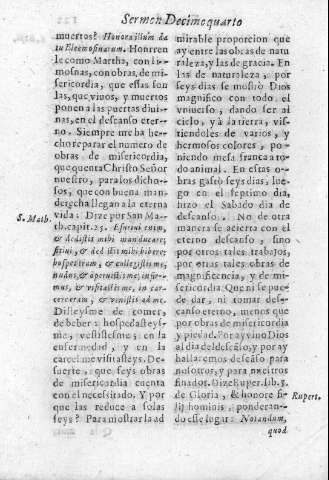 Sermon Decimoquarto
muertos? Honora illum de
tu Eleemosinarum. Honrren
le como Martha, con li-
mosnas, con obras, de mi-
sericordia, que essas son
las, que viuos, y muertos
ponen a las puertas diui-
nas, en el descanso eter-
no. Siempre me ha he-
cho reparar el numero de
obras de misericordia,
que quenta Christo Señor
nuestro, para los dicho-
sos, que con buena man-
derecha llegan a la eterna
vida: Dize por San Ma-
S. Math.
th. capit. 25. Esuriui enim,
& dedistis mihi manducare;
sitiui, & dedistis mihi bibere;
hospes eram, & collegistis me,
nudus, & operuistis me, infir-
mus, & visitastis me, in car-
cere eram, & venistis ad me.
Disteysme de comer,
de beber: hospedasteys-
me, vestistesme; en la
enfermedad, y en la
carcel me visitasteys. De
suerte, que seys obras
de misericordia cuenta
con el necessitado. Y por
que las reduce a solas
seys? Para mostrar la ad
mirable proporcion que
ay entre las obras de natu
raleza, y las de gracia. En
las de naturaleza, por
seys dias se mostrò Dios
magnifico con todo el
vniuerso, dando ser al
cielo, y à la tierra, vis-
tiendoles de varios, y
hermosos colores, po-
niendo mesa franca a to
do animal. En estas o-
bras gastò seys dias, lue-
go en el septimo dia,
hizo el Sabado dia de
descanso. No de otra
manera se acierta con el
eterno descanso, sino
por otros tales trabajos,
por otras tales obras de
magnificencia, y de mi-
sericordia. Que ni se pue-
de dar, ni tomar descan-
so eterno, menos que
por obras de misericordia
y piedad. Por ay vino Dios
al dia del descãso, y por ay
hallaremos descãso para
nosotros, y para nuestros
finados. Dize Ruper. lib. 5.
Rupert.
de Gloria, & honore fi-
lij hominis, ponderan-
do esse lugar: Notandum,
quod